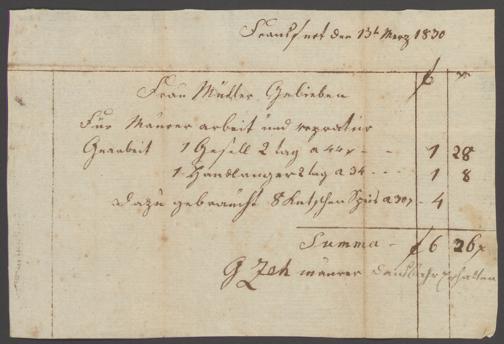 Franckfurt den 13t Merz 1830
f xr
Frau Müller Belieben
Für Maurer arbeit und repratur
Gearbeit 1 Gesell 2 tag a 44x - - 1 28
1 Handlanger 2 tag a 34 - - - 1 8
dazu gebraucht 8 Speis a 30x - 4
Summa - f 6 36x
G Zeh maurer Danckbahr erhalten